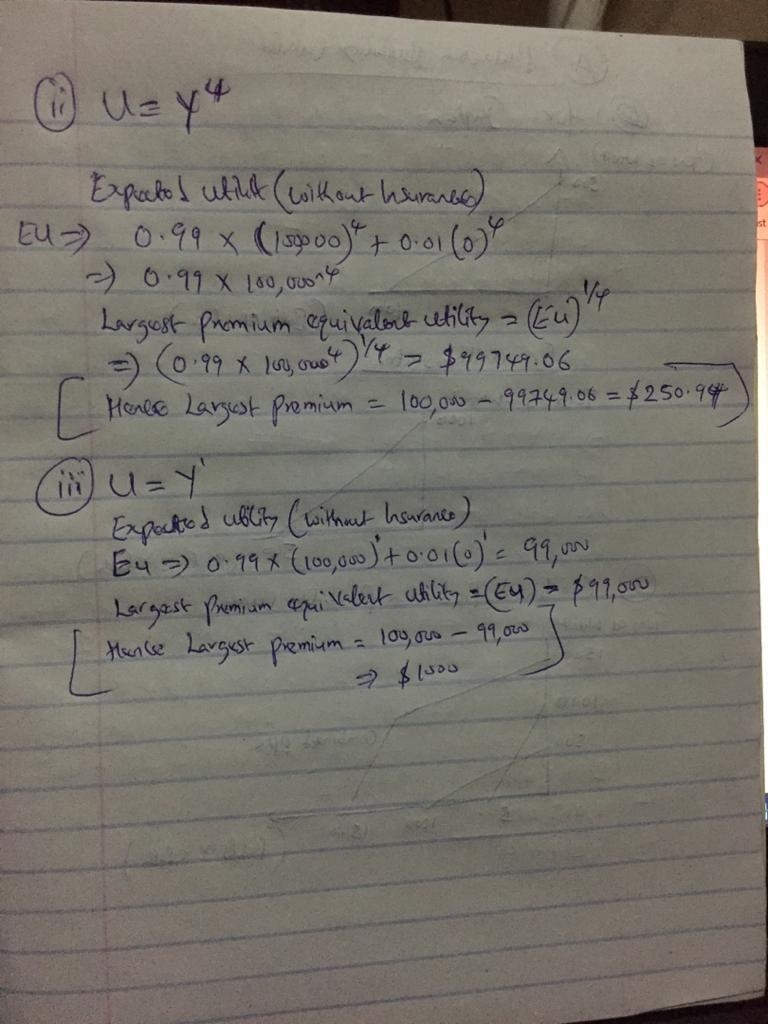 (ii) U = Y⁴
Expected utilit (without Insurance)
EU ⇒ 0.99 × (100,000)⁴ + 0.01 (0)⁴
⇒ 0.99 × 100,000^4
Largest premium equivalent utility = (EU)^1/4
⇒ (0.99 × 100,000⁴)^1/4 = $99749.06
Hence Largest premium = 100,000 - 99749.06 = $250.94
(iii) U = Y¹
Expected utility (without Insurance)
EU ⇒ 0.99 × (100,000)¹ + 0.01 (0)¹ = 99,000
Largest premium equivalent utility = (EU) = $99,000
Hence Largest premium = 100,000 - 99,000
⇒ $1000